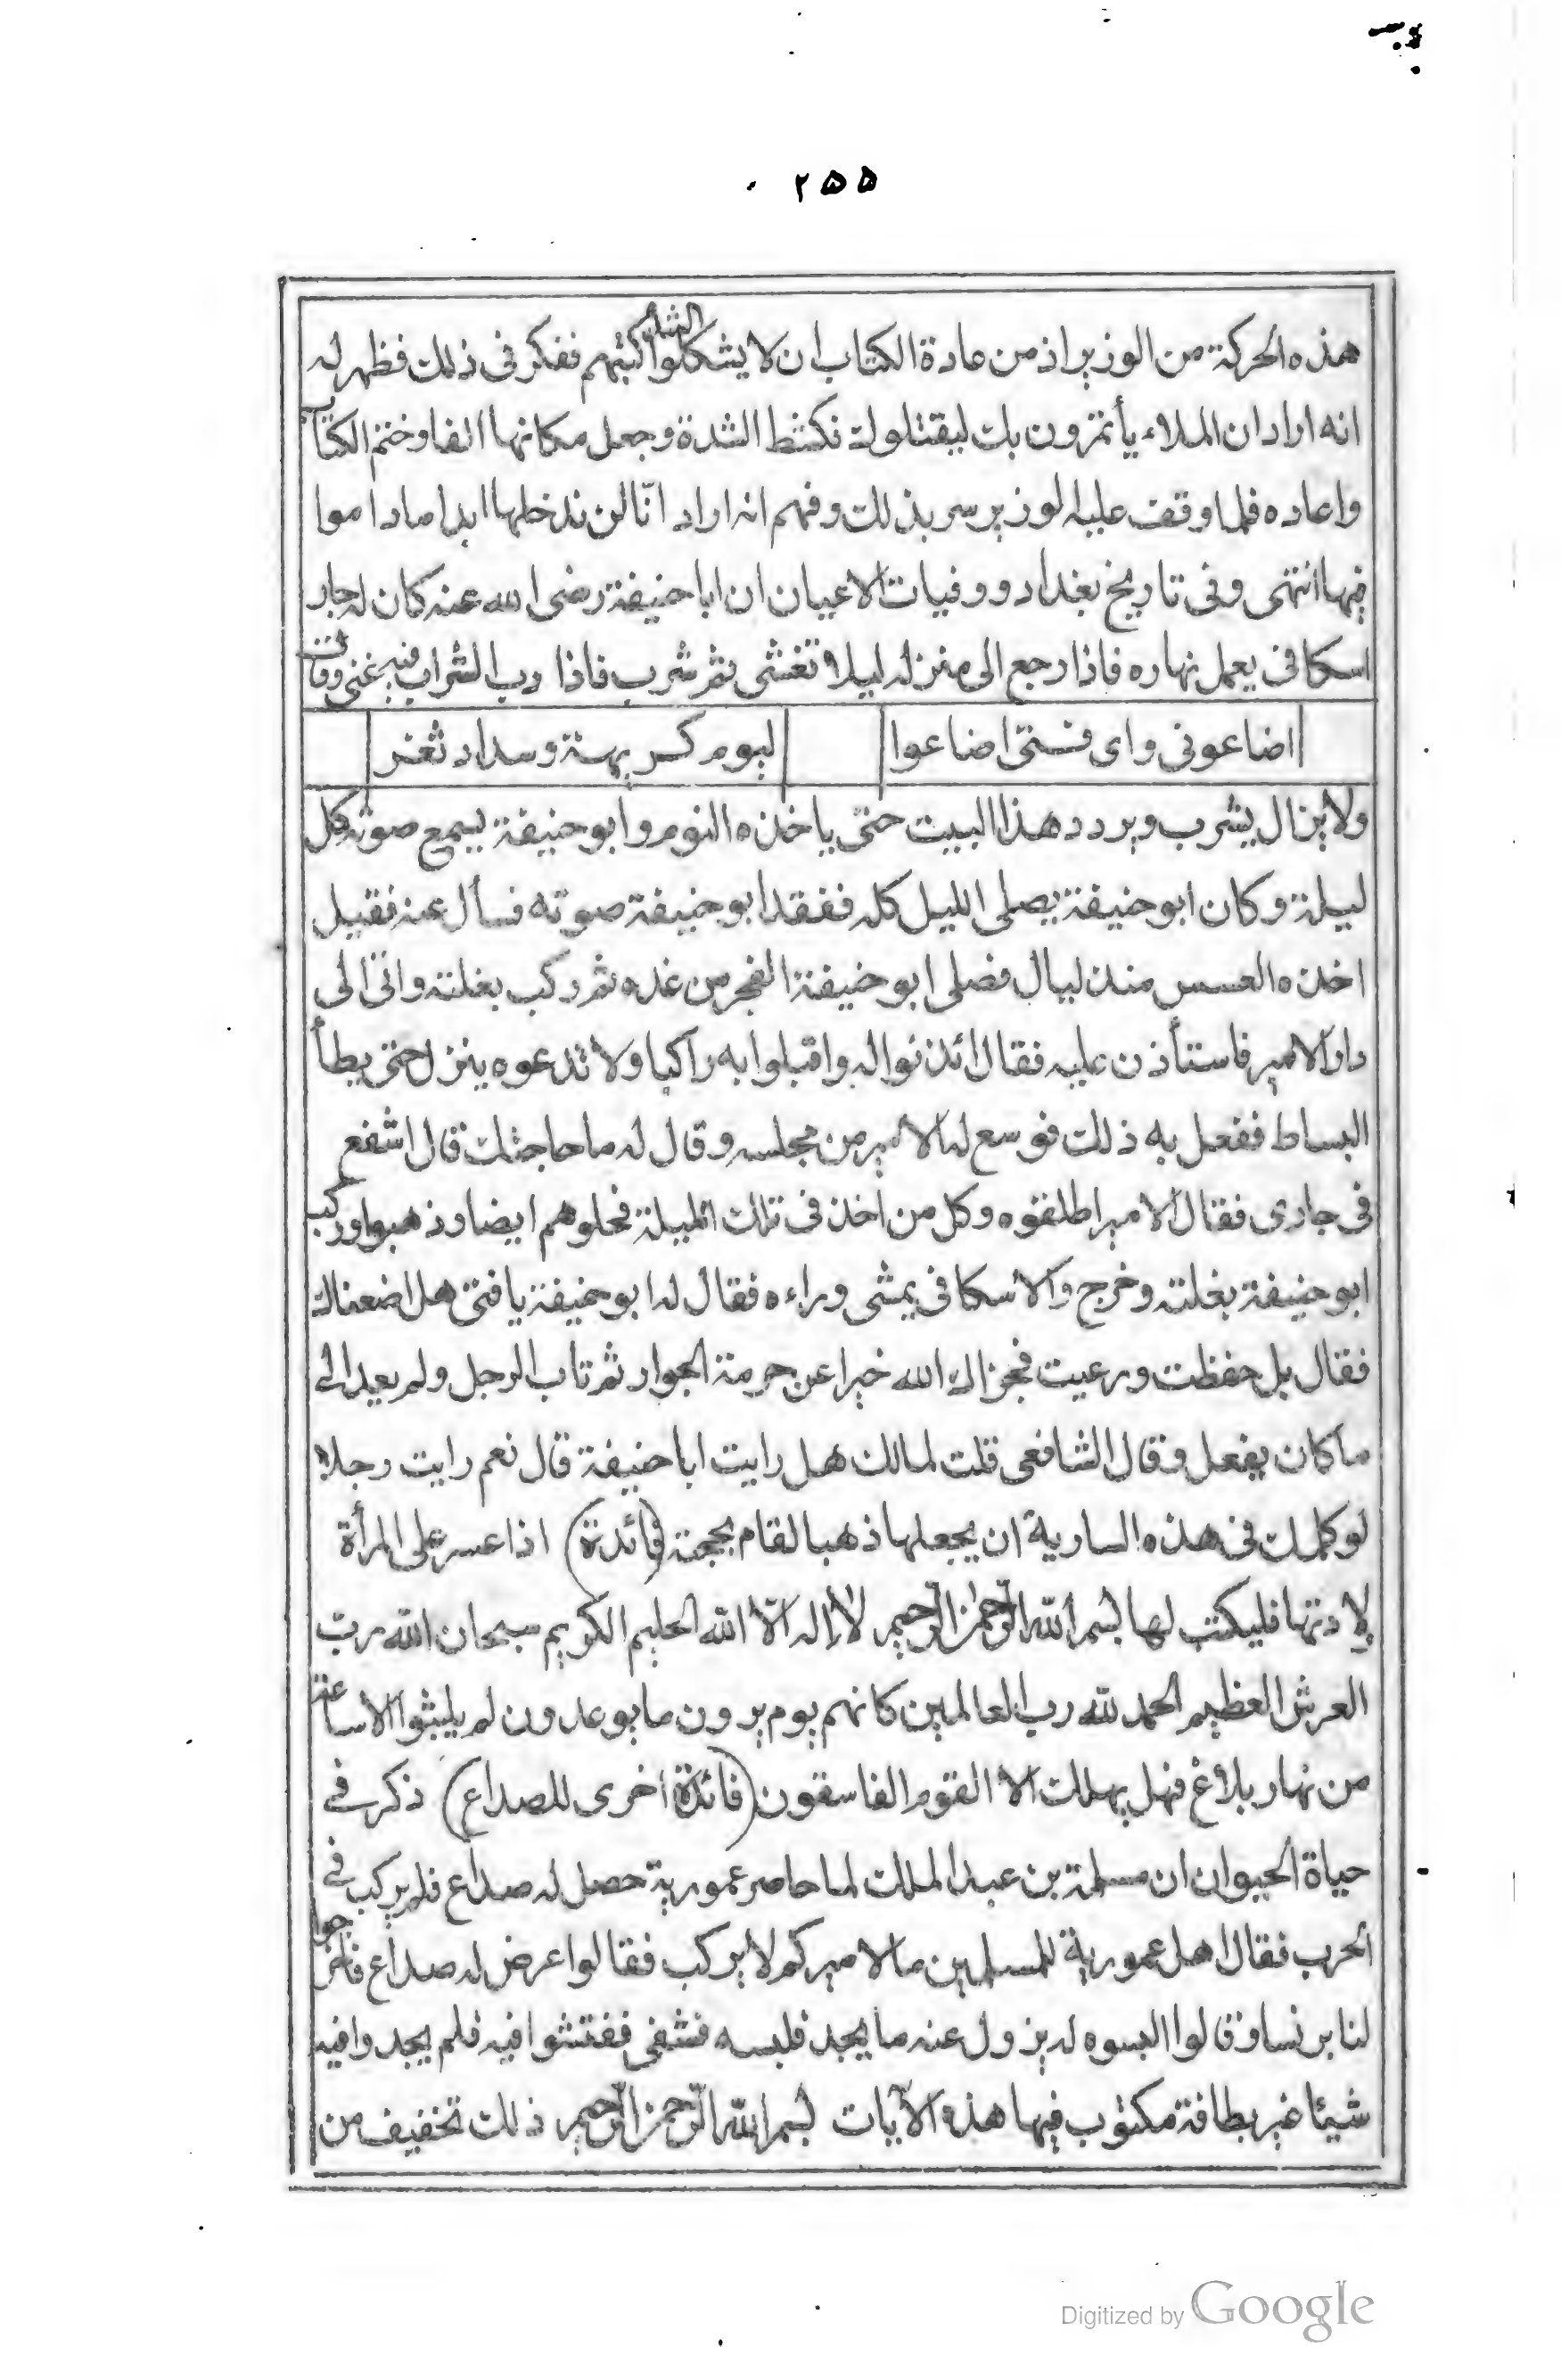 ٢٥٥
هذه الحركة من الوزير اذ من عادة الكتاب ان لا يشكلوا كتبهم ففكر فى ذلك فظهر له
انه اراد ان الملاء يأتمرون بك ليقتلوك فكشط الشدة وجعل مكانها الفا وختم الكتاب
واعاده فلما وقف عليه الوزير سر بذلك وفهم انه اراد انّا لن ندخلها ابدا ما داموا
فيها انتهى وفى تاريخ بغداد ووفيات الاعيان ان ابا حنيفة رضى الله عنه كان له جار
اسكافى يعمل نهاره فاذا رجع الى منزله ليلا تغشى ثم شرب فاذا دب الشراب فيه غنى وقال
اضاعونى واى فتى اضاعوا ليوم كريهة وسداد ثغر
ولا يزال يشرب ويردد هذا البيت حتى ياخذه النوم وابو حنيفة يسمع صوته كل
ليلة وكان ابو حنيفة يصلى الليل كله ففقد ابو حنيفة صوته فسأل عنه فقيل
اخذه العسس منذ ليال فصلى ابو حنيفة الفجر من غده ثم ركب بغلته واتى الى
دار الامير فاستأذن عليه فقال ائذنوا له واقبلوا به راكبا ولا تدعوه ينزل حتى يطأ
البساط ففعل به ذلك فوسع له الامير من مجلسه وقال له ما حاجتك قال اشفع
فى جارى فقال الامير اطلقوه وكل من اخذ فى تلك الليلة فخلوهم ايضا وذهبوا وركب
ابو حنيفة بغلته وخرج والاسكافى يمشى وراءه فقال له ابو حنيفة يا فتى هل اضعناك
فقال بل حفظت ورعيت فجزاك الله خيرا عن حرمة الجوار ثم تاب الرجل ولم يعد الى
ما كان يفعل وقال الشافعى قلت لمالك هل رايت ابا حنيفة قال نعم رايت رجلا
لو كلمك فى هذه السارية ان يجعلها ذهبا لقام بحجته (فائدة) اذا عسر على المرأة
ولادتها فليكتب لها بسم الله الرّحمٰن الرّحيم لا اله الّا الله الحليم الكريم سبحان الله ربّ
العرش العظيم الحمد لله رب العالمين كانهم يوم يرون ما يوعدون لم يلبثوا الا ساعة
من نهار بلاغ فهل يهلك الا القوم الفاسقون (فائدة اخرى للصداع) ذكر فى
حياة الحيوان ان مسلمة بن عبد الملك لما حاصر عمورية حصل له صداع فلم يركب فى
الحرب فقال اهل عمورية للمسلمين ما لاميركم لا يركب فقالوا عرض له صداع فاخرجوا
لنا برنسا وقالوا البسوه له يزول عنه ما يجد فلبسه فشفى ففتشوا فيه فلم يجدوا فيه
شيئا غير بطاقة مكتوب فيها هذه الآيات بسم الله الرّحمٰن الرّحيم ذلك تخفيف من
Digitized by Google